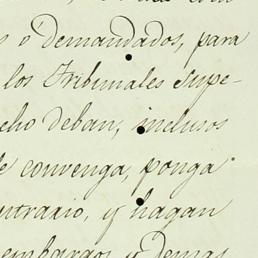 o demandados, para
los Tribunales Supe-
cho deban, inclusos
convenga, ponga
ntrario, y hagan
embargos y demas